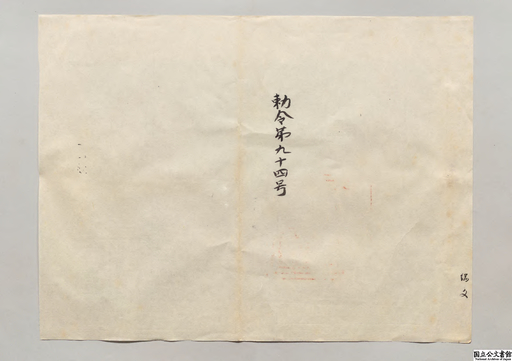 勅令第九十四号
国立公文書館
National Archives of Japan